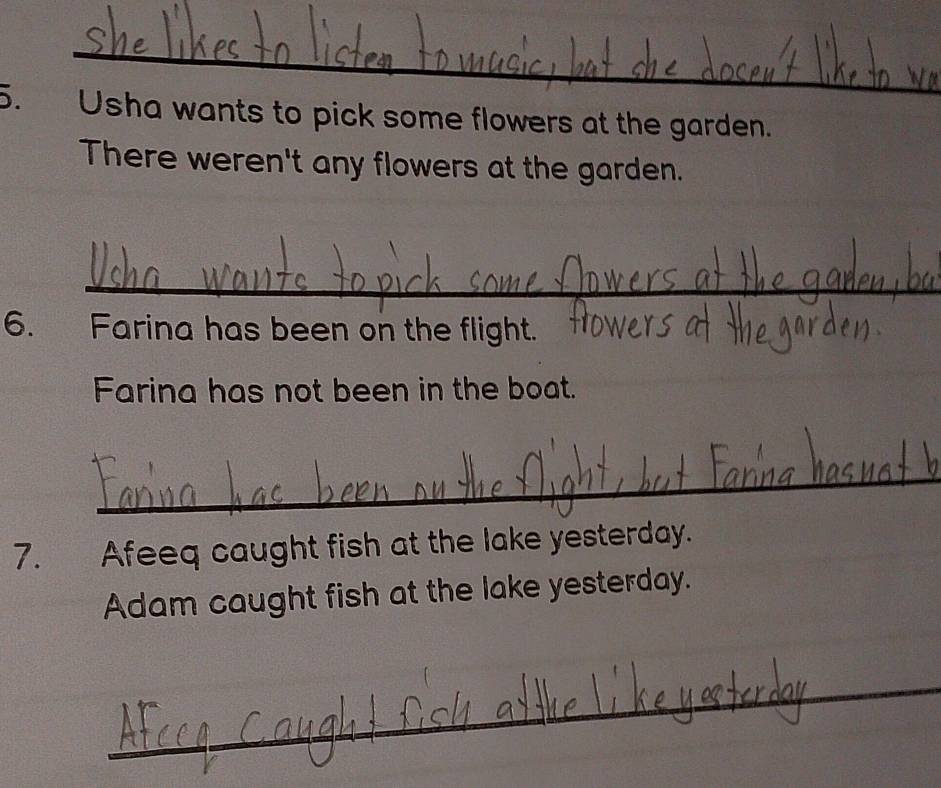 she likes to listen to music, but she docen't like to
5. Usha wants to pick some flowers at the garden.
There weren't any flowers at the garden.
Usha wants to pick some flowers at the gaden, but
flowers at the garden.
6. Farina has been on the flight.
Farina has not been in the boat.
Farina has been on the flight, but Farina has not b
7. Afeeq caught fish at the lake yesterday.
Adam caught fish at the lake yesterday.
Afeeq caught fish at the like yesterday